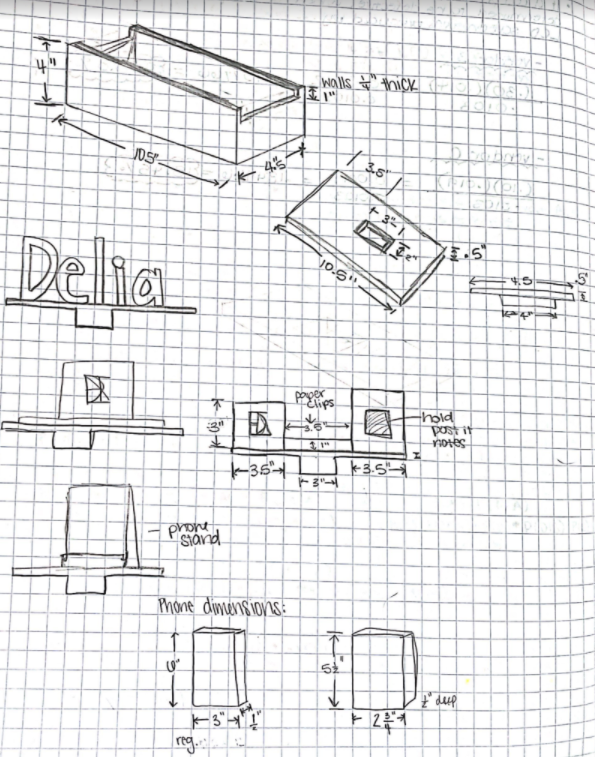 4"
walls 1/4" thick
1"
10.5"
4.5"
3.5"
3"
2"
.5"
10.5"
4.5
.5"
4"
Delia
paper
clips
3"
3.5"
.1"
hold
post it
notes
3.5"
3"
3.5"
phone
stand
Phone dimensions:
6"
5 1/2"
3"
1/2"
2 3/4"
1/2" deep
reg.